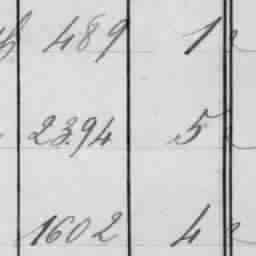 489 1
2394 5
1602 4